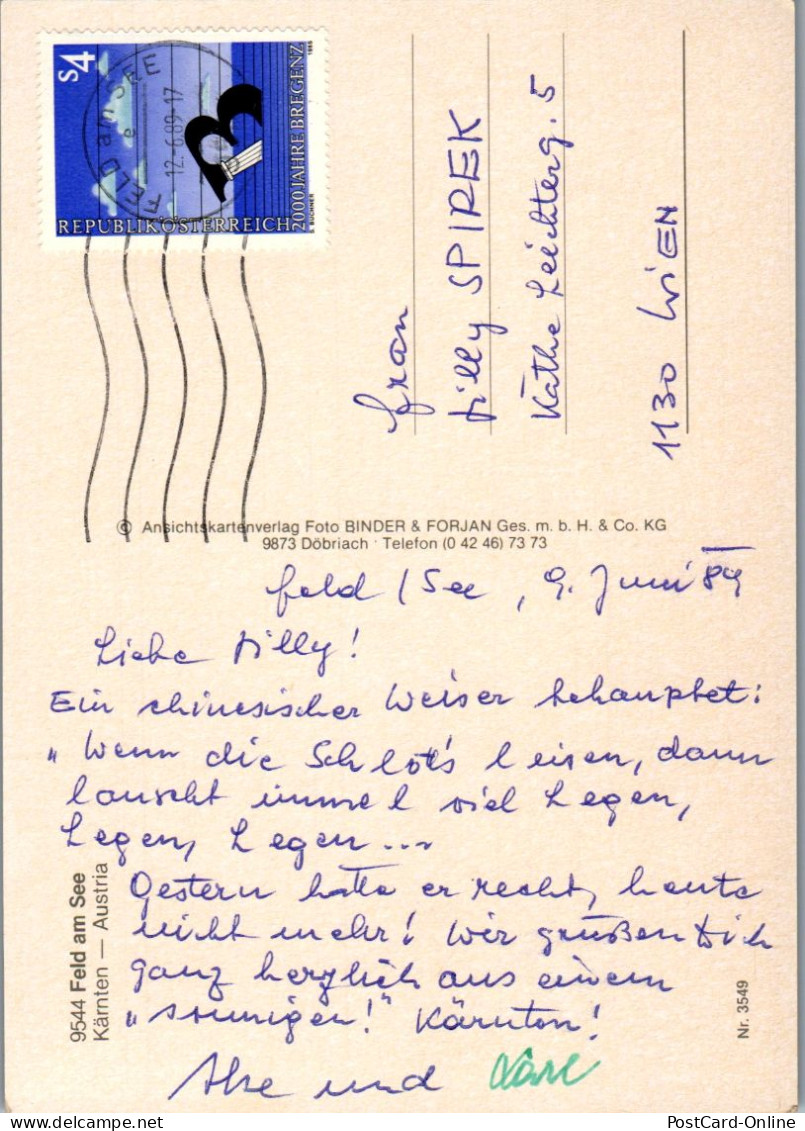 S4
2000 JAHRE BREGENZ
1985
BUCHNER
REPUBLIK ÖSTERREICH
FELD am SEE
a
12.-6.89-17
Frau
Hilly SPIREK
Käthe Leichterg. 5
1130 WIEN
© Ansichtskartenverlag Foto BINDER & FORJAN Ges. m. b. H. & Co. KG
9873 Döbriach · Telefon (0 42 46) 73 73
Feld / See, 9. Juni 89
Liebe Hilly!
Ein chinesischer Weiser behauptet:
„Wenn die Schlot's leisen, dann
lauscht immel viel Legen,
Legen, Legen ...
Gestern hatte er recht, heute
nicht mehr! Wir grüßen Dich
ganz herzlich aus einem
„sonnigen!" Kärnten!
und
9544 Feld am See
Kärnten — Austria
Nr. 3549
PostCard-Online
PostCard-Online